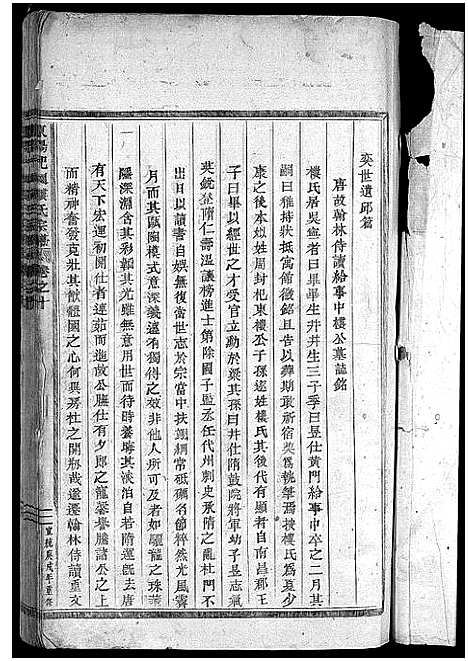 奕世遺邱篇
唐故翰林侍讀給事中樓公墓誌銘
樓氏居吳寧者曰畢畢生井井生三子季曰昱仕黃門給事中卒之二月其
嗣曰雅持狀抵寓館徵銘且告以葬期敢所宿奠爲執筆焉按樓氏爲夏少
康之後本姒姓周封杞東樓公子孫遂姓樓氏其後代有顯者自南昌郡王
子曰畢以經世之才受官立勳於梁其孫曰井仕隋鼓院將軍幼子昱志氣
英銳登隋仁壽溫議榜進士第除國子監丞任代州刺史承隋之亂杜門不
出日以讀書自娛無復當世志於宗黨中扶翊綱常砥礪名節粹然光風霽
月而其區閫模式意深義遠有獨得之效非他人所可及者如驪龍之珠
隱深淵含其彩韜其光雖無意用世而待時養晦其淡泊自若隋運旣去唐
有天下宏運初開仕者連茹而進故公膴仕有夕郎之寵蜚譽騰諸公之上
而精神奮發克壯其猷體國之心何異房杜之開濟哉遷遷翰林侍讀重文
氏宗譜 卷之十
重修庚戌年重修